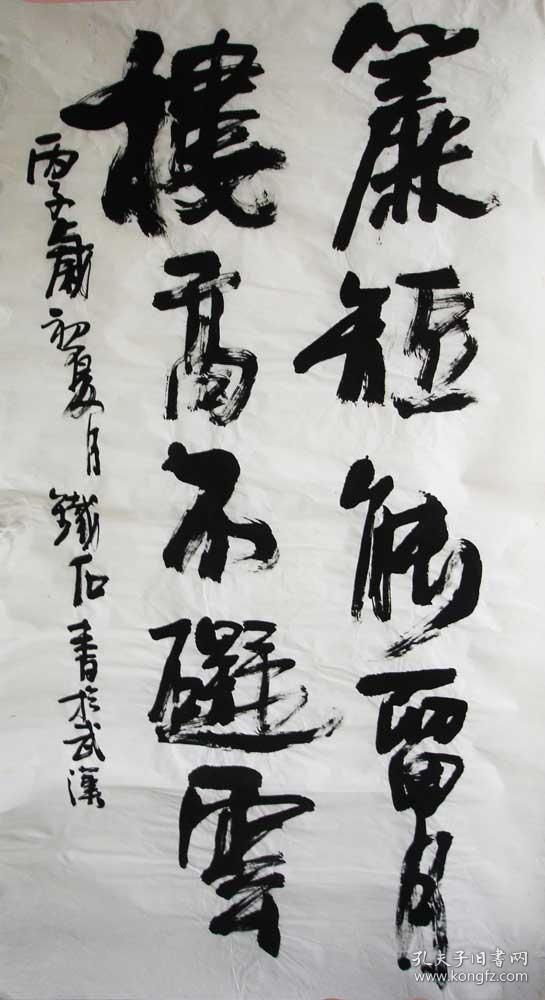 簾短能留月
樓高不礙雲
丙子歲初夏月鐵石書於武漢
孔夫子旧书网
www.kongfz.com